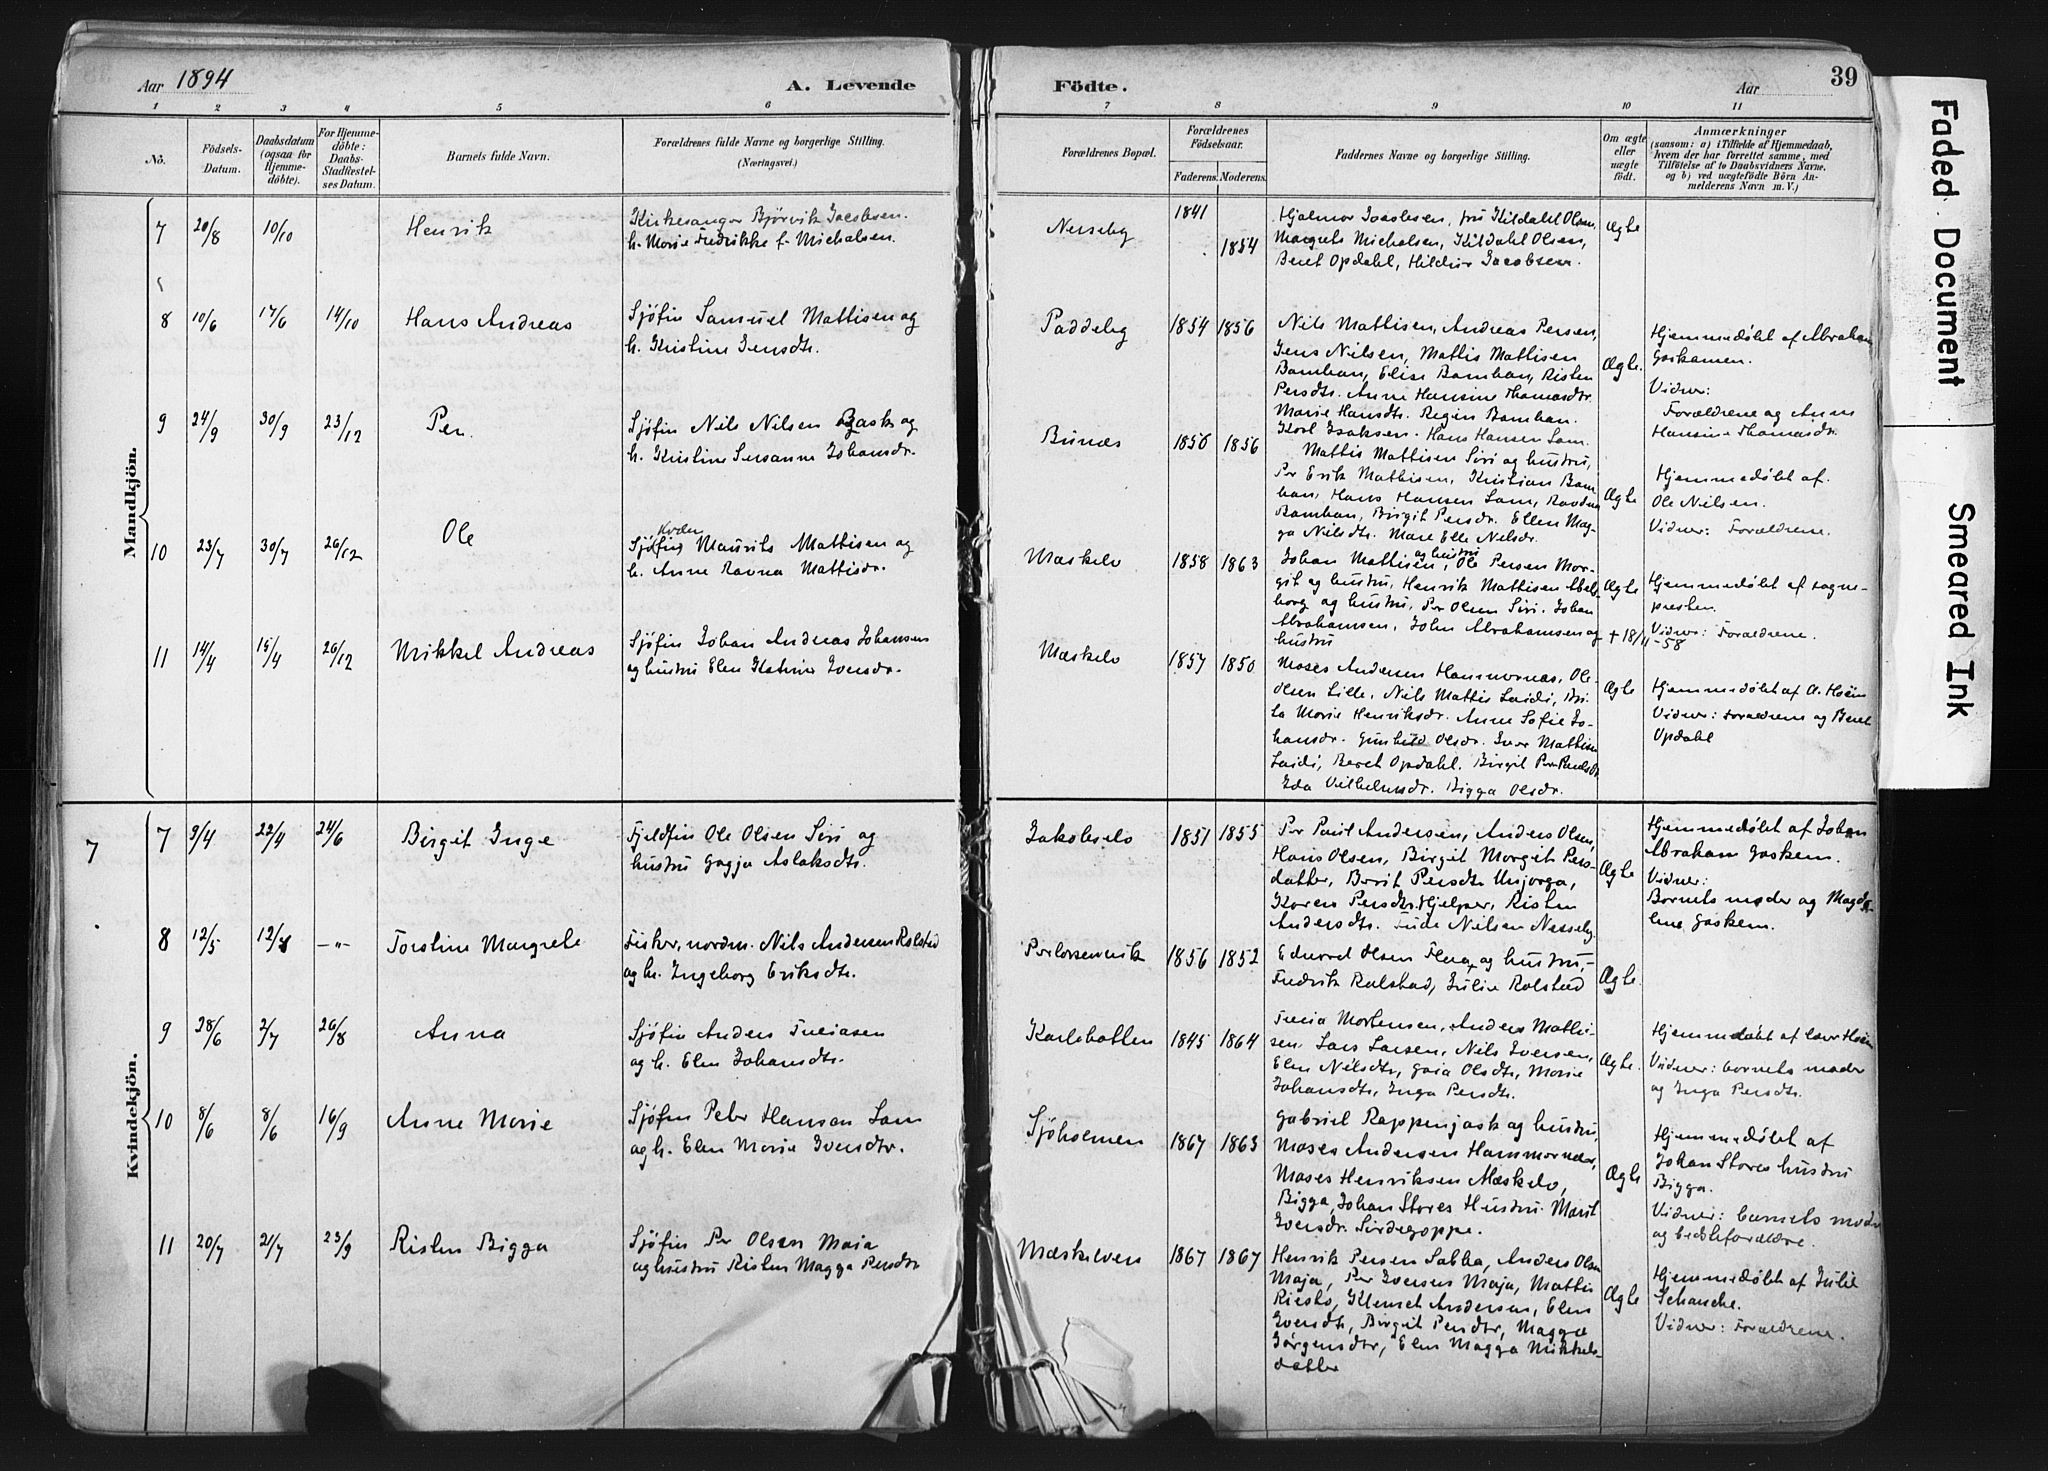 Aar 1894
A. Levende
Födte.
Aar
39
1 2 3 4 5 6 7 8 9 10 11
No.
Födsels-Datum.
Daabsdatum (ogsaa for Hjemmedöbte).
For Hjemmedöbte: Daabs-Stadfestelses Datum.
Barnets fulde Navn.
Forældrenes fulde Navne og borgerlige Stilling.
(Næringsvei.)
Forældrenes Bopæl.
Forældrenes Födselsaar.
Faderens. Moderens.
Faddernes Navne og borgerlige Stilling.
Om ægte eller uægte födt.
Anmærkninger
(saasom: a) i Tilfælde af Hjemmedaab,
hvem der har forrettet samme, med
Tilföielse af to Daabsvidners Navne,
og b) ved uægtefödte Börn An-
melderens Navn m. V.)
Mandkjön.
7 20/8 10/10 Henrik
Kirkesanger Bjørvik Jacobsen.
h. Marie Fredrikke f. Michalsen.
Nesseby 1841 1854
Hjalmar Jacobsen, fru Kildahl Olsen,
Margrete Michalsen, Kildahl Olsen,
Beret Opdahl, Hildur Jacobsen.
Ægte
8 10/6 17/6 14/10 Hans Andreas
Sjøfin Samuel Mattisen og
h. Kristine Jensdtr.
Paddeby 1854 1856
Nils Mattisen, Andreas Persen,
Jens Nilsen, Mattis Mattisen
Bamhan, Elise Bamhan, Risten
Persdtr. Anne Hansine Thomasdtr.
Marie Hansdtr. Regin Bamhan.
Ægte.
Hjemmedøbt af Abraham
Gaskamen.
Vidner:
Forældrene og Anne
Hansine Thomasdr.
9 24/9 30/9 23/12 Per.
Sjøfin Nils Nilsen Gask og
h. Kristine Susanne Johansdr.
Bunæs 1856 1856
Karl Isaksen. Hans Hansen Lam.
Mattis Mattisen Siri og hustru,
Per Erik Mathisen, Kristian Bam
han, Hans Hansen Lam, Ravdna
Bamhan, Birgit Persdr. Ellen Mag-
ga Nilsdtr. Mare Elle Nilsdr.
Ægte
Hjemmedøbt af.
Ole Nilsen.
Vidner: Forældrene.
10 23/7 30/7 26/12 Ole
Kvæn
Sjøfin Maurits Mattisen og
h. Anne Ravna Mattisdr.
Mæskelv 1858 1863
Johan Mattisen, og hustru Ole Persen Mor-
git og hustru, Henrik Mattisen Abels-
borg og hustru, Per Olsen Siri. Johan
Abrahamsen, John Abrahamsen og
hustru
Ægte
Hjemmedøbt af sogne-
presten.
Vidner: Forældrene.
+ 18/11-58
11 14/4 15/4 26/12 Mikkel Andreas
Sjøfin Johan Andreas Johansen
og hustru Elen Katrine Iversdr.
Mæskelv 1857 1850
Moses Andersen Hammernæs, Ole
Olsen Lille, Nils Mattis Laidi, Bri-
ta Marie Henriksdr. Anne Sofie Jo-
hansdr. Gunhild Olsdr. Iver Mathisen
Laidi, Beret Opdahl. Birgit Per Paulsdr.
Ida Vilhelmsdr. Bigga Olsdr.
Ægte
Hjemmedøbt af A. Hoëm
Vidner: Forældrene og Beret
Opdahl
Kvindekjön.
7
7 9/4 22/4 24/6 Birgit Inge
Fjeldfin Ole Olsen Siri og
hustru Gagja Aslaksdtr.
Jakobselv 1851 1855
Per Paul Andersen, Anders Olsen,
Hans Olsen, Birgit Morgit Pers-
datter, Berit Persdtr. Unjorga,
Karen Persdtr. Hjelper, Risten
Andersdtr. Fude Nilsen Nesseby.
Ægte
Hjemmedøbt af Johan
Abraham Gaskem.
Vidner:
Barnets moder og Magda
lene Gaskem.
8 12/5 12/8 —"— Torstine Margrete
Fisker, nordm. Nils Andersen Rolstad
og h. Ingeborg Eriksdtr.
Perlarsenvik 1856 1852
Edvard Olsen Flena og hustru,
Fredrik Rolstad, Julie Rolstad
Ægte.
9 28/6 2/7 26/8 Anna
Sjøfin Anders Freiasen
og h. Elen Johansdtr.
Karlebotten 1845 1864
Freia Mortensen, Anders Matti-
sen. Lars Larsen, Nils Iversen,
Elen Nilsdtr, Gaia Olsdtr, Marie
Johansdtr, Inga Persdtr.
Ægte.
Hjemmedøbt af lærer Hoëm
Vidner: barnets moder
og Inga Persdtr.
10 8/6 8/6 16/9 Anne Marie
Sjøfin Peter Hansen Lam
og h. Elen Marie Iversdtr.
Sjøholmen 1867 1863
Gabriel Rappenjask og hustru,
Moses Andersen Hammernæs,
Moses Henriksen Mæskelv,
Bigga, Johan Stores Hustru. Marit
Iversdr. Sirdegoppe.
Ægte
Hjemmedøbt af
Johan Stores hustru
Bigga.
Vidner: barnets moder
og bedsteforældre.
11 20/7 21/7 23/9 Risten Bigga
Sjøfin Per Olsen Maja
og hustru Risten Magga Persdtr
Mæskelven 1867 1867
Henrik Persen Sabba, Anders Olsen
Maja, Per Iversen Maja, Mattis
Riesto, Klemet Andersen, Elen
Iversdtr, Birgit Persdtr, Magga
Jørgensdtr, Elen Magga Mikkels-
datter
Ægte
Hjemmedøbt af Julie
Schanche.
Vidner: Forældrene.
Faded Document
Smeared Ink